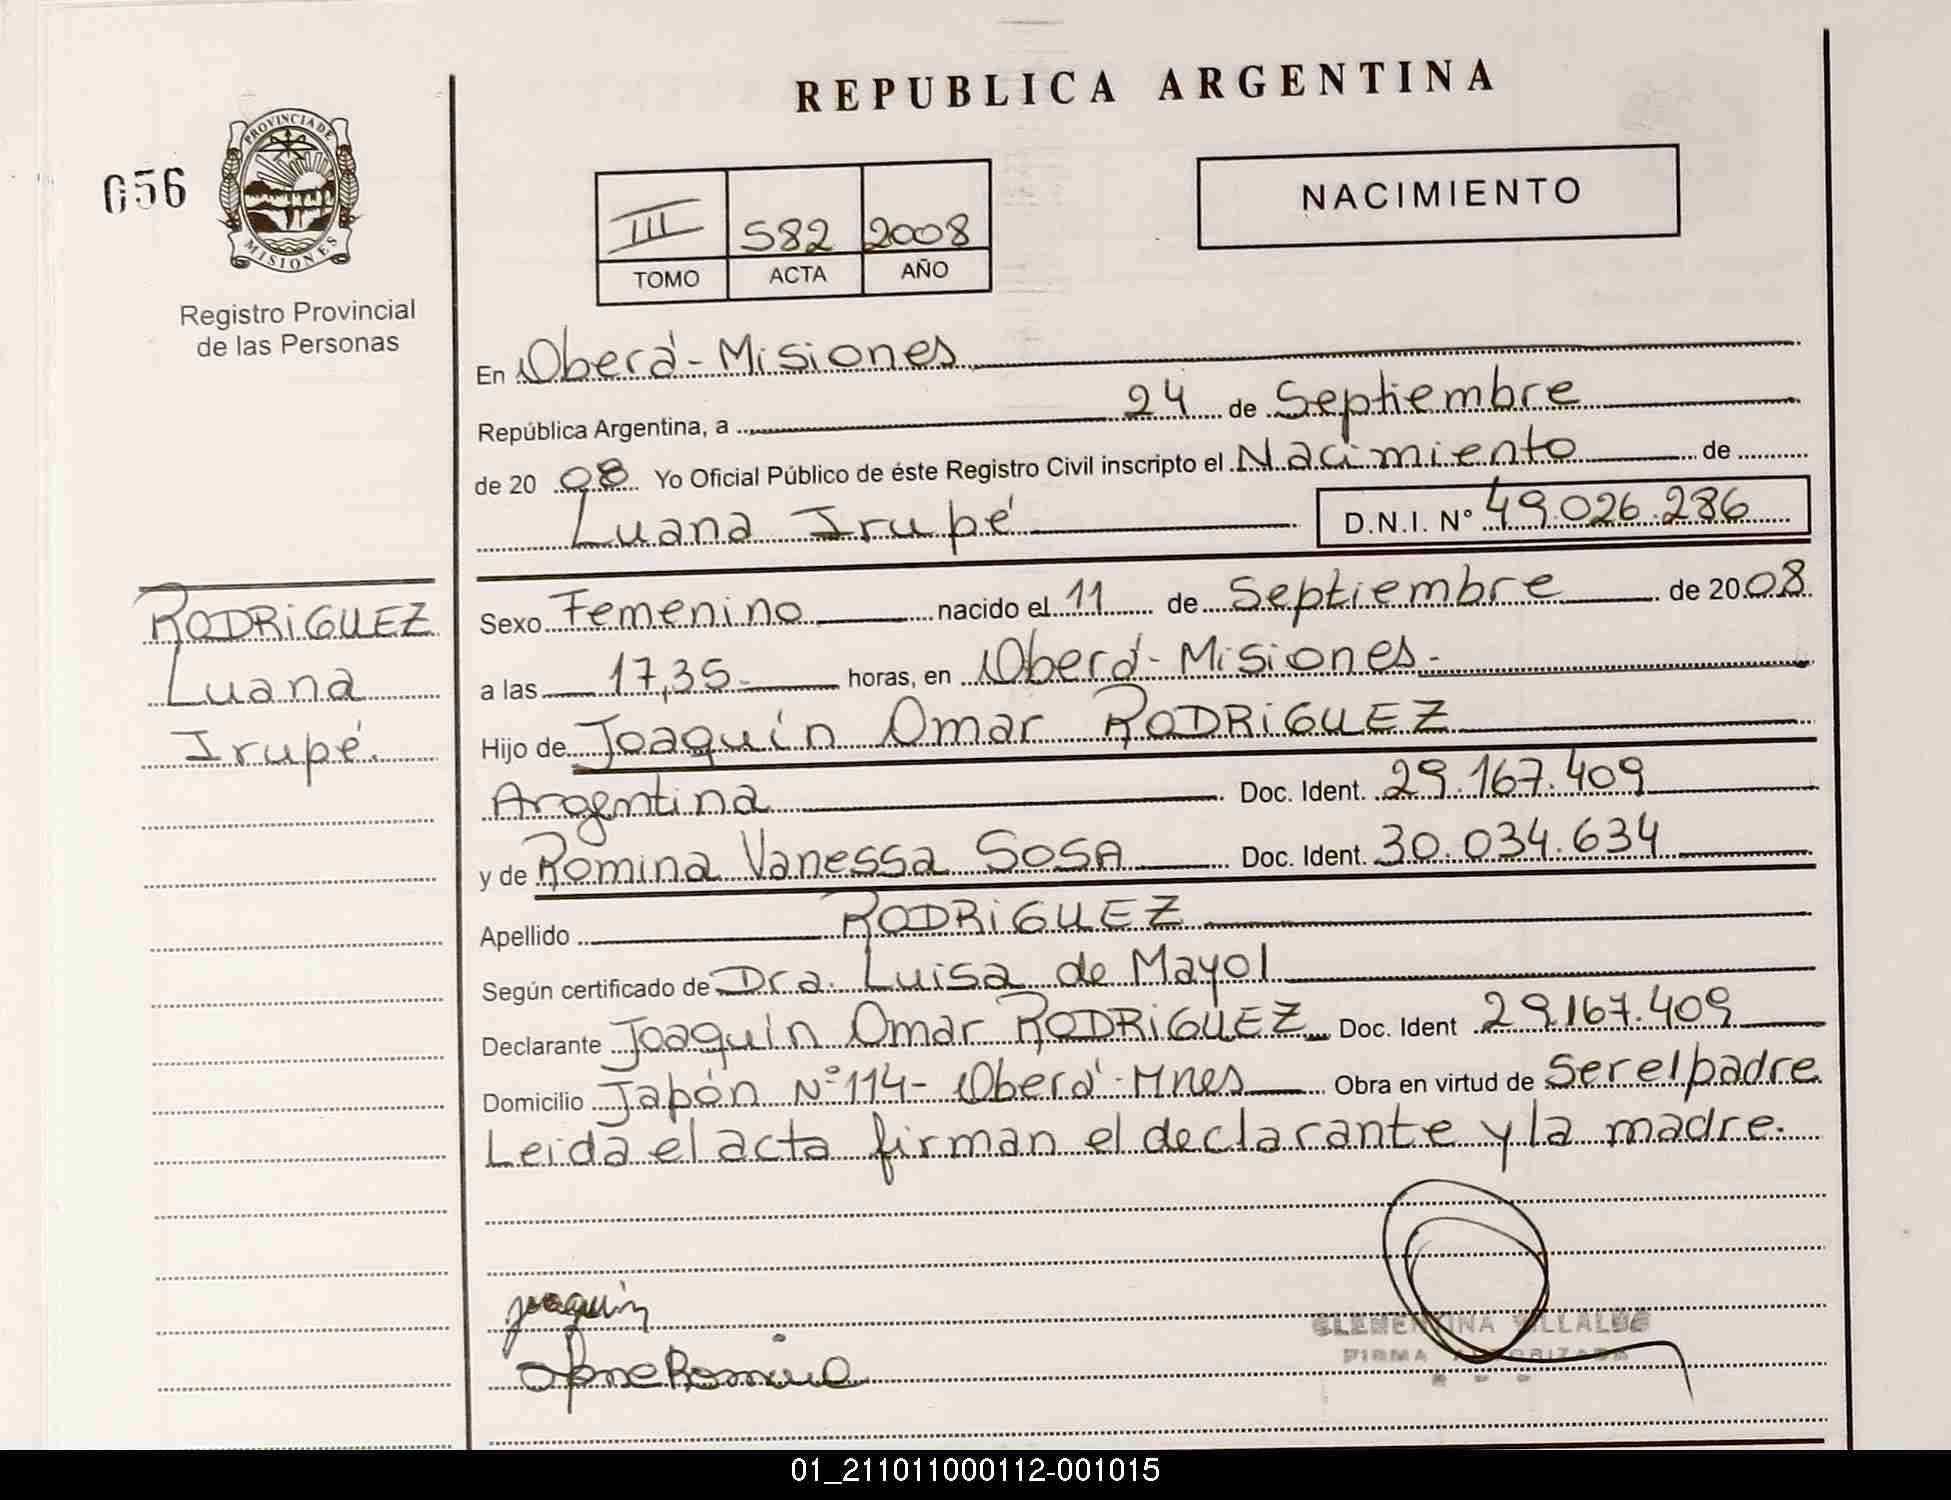 REPUBLICA ARGENTINA
056
PROVINCIA DE
MISIONES
Registro Provincial
de las Personas
NACIMIENTO
III 582 2008
TOMO ACTA AÑO
En Oberá - Misiones
República Argentina, a 24 de Septiembre
de 2008 Yo Oficial Público de éste Registro Civil inscripto el Nacimiento de
Luana Irupé D.N.I. N° 49.026.286
RODRIGUEZ
Luana
Irupé.
Sexo Femenino nacido el 11 de Septiembre de 2008
a las 17,35 horas, en Oberá - Misiones.
Hijo de Joaquín Omar RODRIGUEZ
Argentina Doc. Ident. 29.167.409
y de Romina Vanessa SOSA Doc. Ident. 30.034.634
Apellido RODRIGUEZ
Según certificado de Dra. Luisa de Mayol
Declarante Joaquín Omar RODRIGUEZ Doc. Ident 29.167.409
Domicilio Japón N° 114 - Oberá - Mnes Obra en virtud de Ser el padre
Leida el acta firman el declarante y la madre.
joaquin
Romina
CLEMENTINA VILLALBO
FIRMA AUTORIZADA
01_211011000112-001015